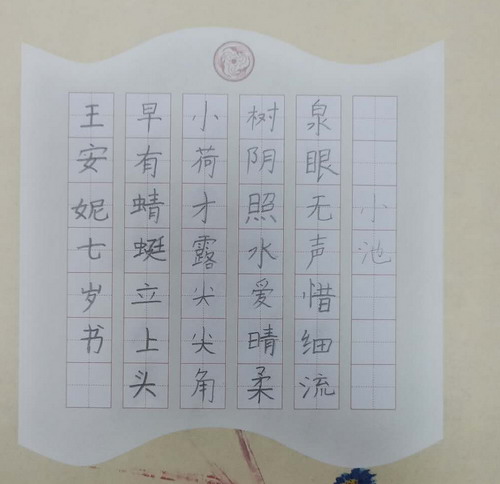 小池
泉眼无声惜细流
树阴照水爱晴柔
小荷才露尖尖角
早有蜻蜓立上头
王安妮七岁书